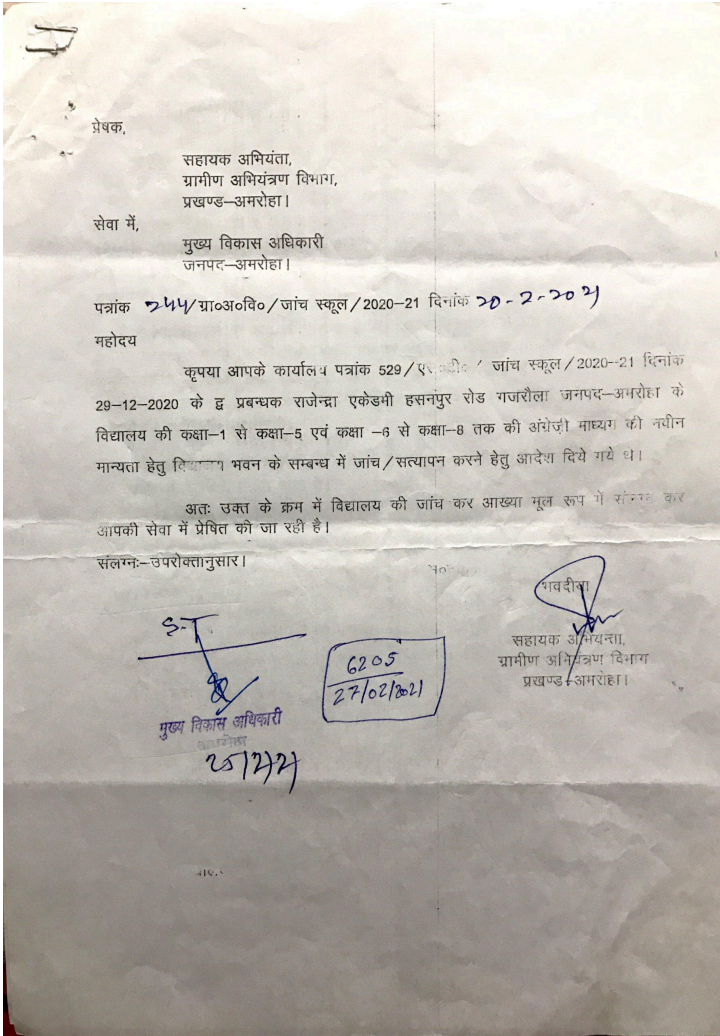 प्रेषक,
सहायक अभियंता,
ग्रामीण अभियंत्रण विभाग,
प्रखण्ड–अमरोहा।
सेवा में,
मुख्य विकास अधिकारी
जनपद–अमरोहा।
पत्रांक 244/ग्रा०अ०वि०/जांच स्कूल/2020–21 दिनांक 20-2-2021
महोदय
कृपया आपके कार्यालय पत्रांक 529/ जांच स्कूल/2020–21 दिनांक
29–12–2020 के द्व प्रबन्धक राजेन्द्रा एकेडमी हसनपुर रोड गजरौला जनपद–अमरोहा के
विद्यालय की कक्षा–1 से कक्षा–5 एवं कक्षा –6 से कक्षा–8 तक की अंग्रेज़ी माध्यम की नवीन
मान्यता हेतु भवन के सम्बन्ध में जांच/सत्यापन करने हेतु आदेश दिये गये थे।
अतः उक्त के क्रम में विद्यालय की जांच कर आख्या मूल रूप में संलग्न कर
आपकी सेवा में प्रेषित की जा रही है।
संलग्नः–उपरोक्तानुसार।
भवदीया
सहायक अभियन्ता,
ग्रामीण अभियंत्रण विभाग
प्रखण्ड–अमरोहा।
S.T.
6205
27/02/2021
मुख्य विकास अधिकारी
अमरोहा